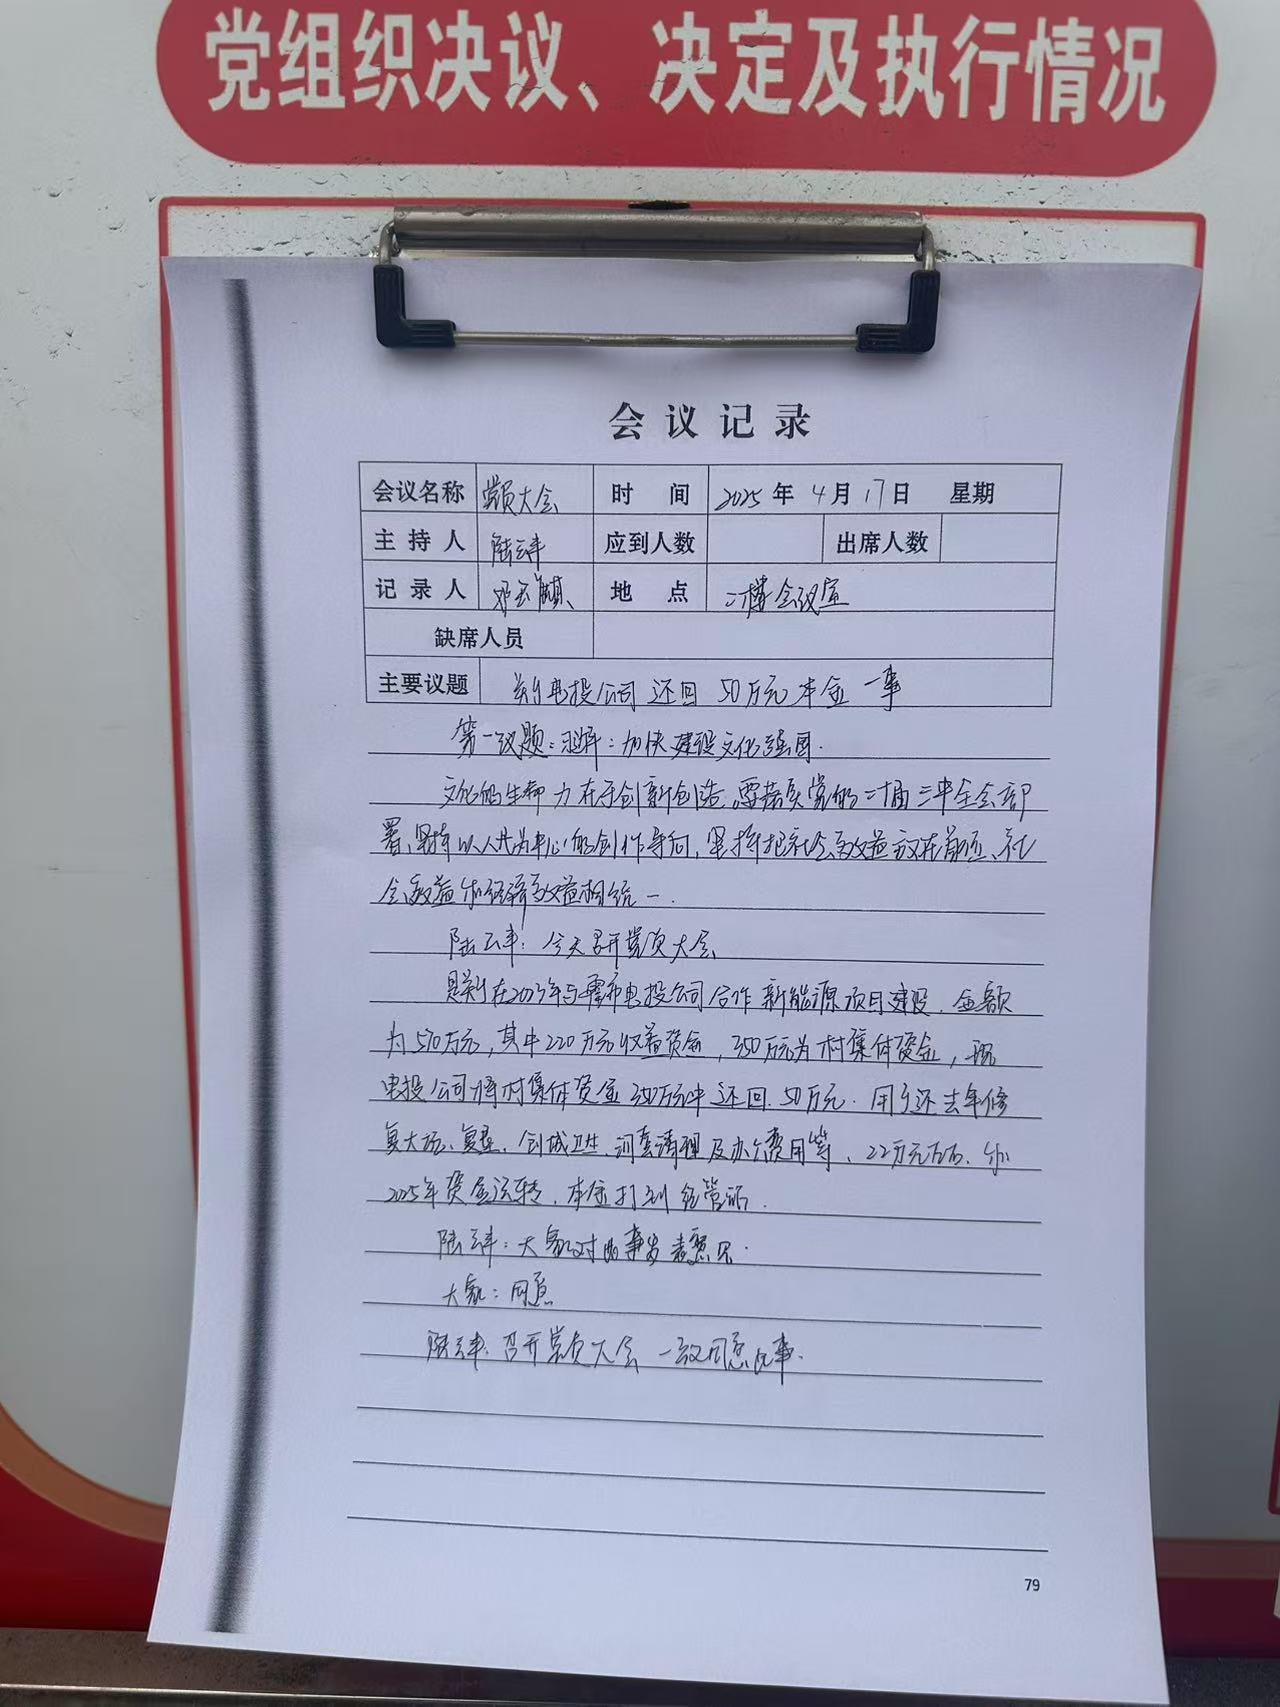 党组织决议、决定及执行情况
会议记录
会议名称 党员大会 时 间 2025年 4月 17日 星期
主持人 陆云丰 应到人数 出席人数
记录人 邓玉 地 点 二楼会议室
缺席人员
主要议题 关于电投公司还回50万元本金一事
第一议题:加快建设文化强国.
文化的生命力在于创新创造。要落实党的二十届三中全会部
署、坚持以人民为中心的创作导向,坚持把社会效益放在首位、社
会效益和经济效益相统一.
陆云丰:今天召开党员大会
是关于在2023年与电投公司合作新能源项目建设.金额
为570万元,其中220万元收益资金,350万元为村集体资金,现
电投公司将村集体资金350万元中还回.50万元.用于还去年修
复大场、复垦、创城卫生、清理及办公费用等、22万元左右、和
2025年资金运转.本金打到经管站.
陆云丰:大家对此事发表意见.
大家:同意
陆云丰:召开党员大会一致同意此事.
79